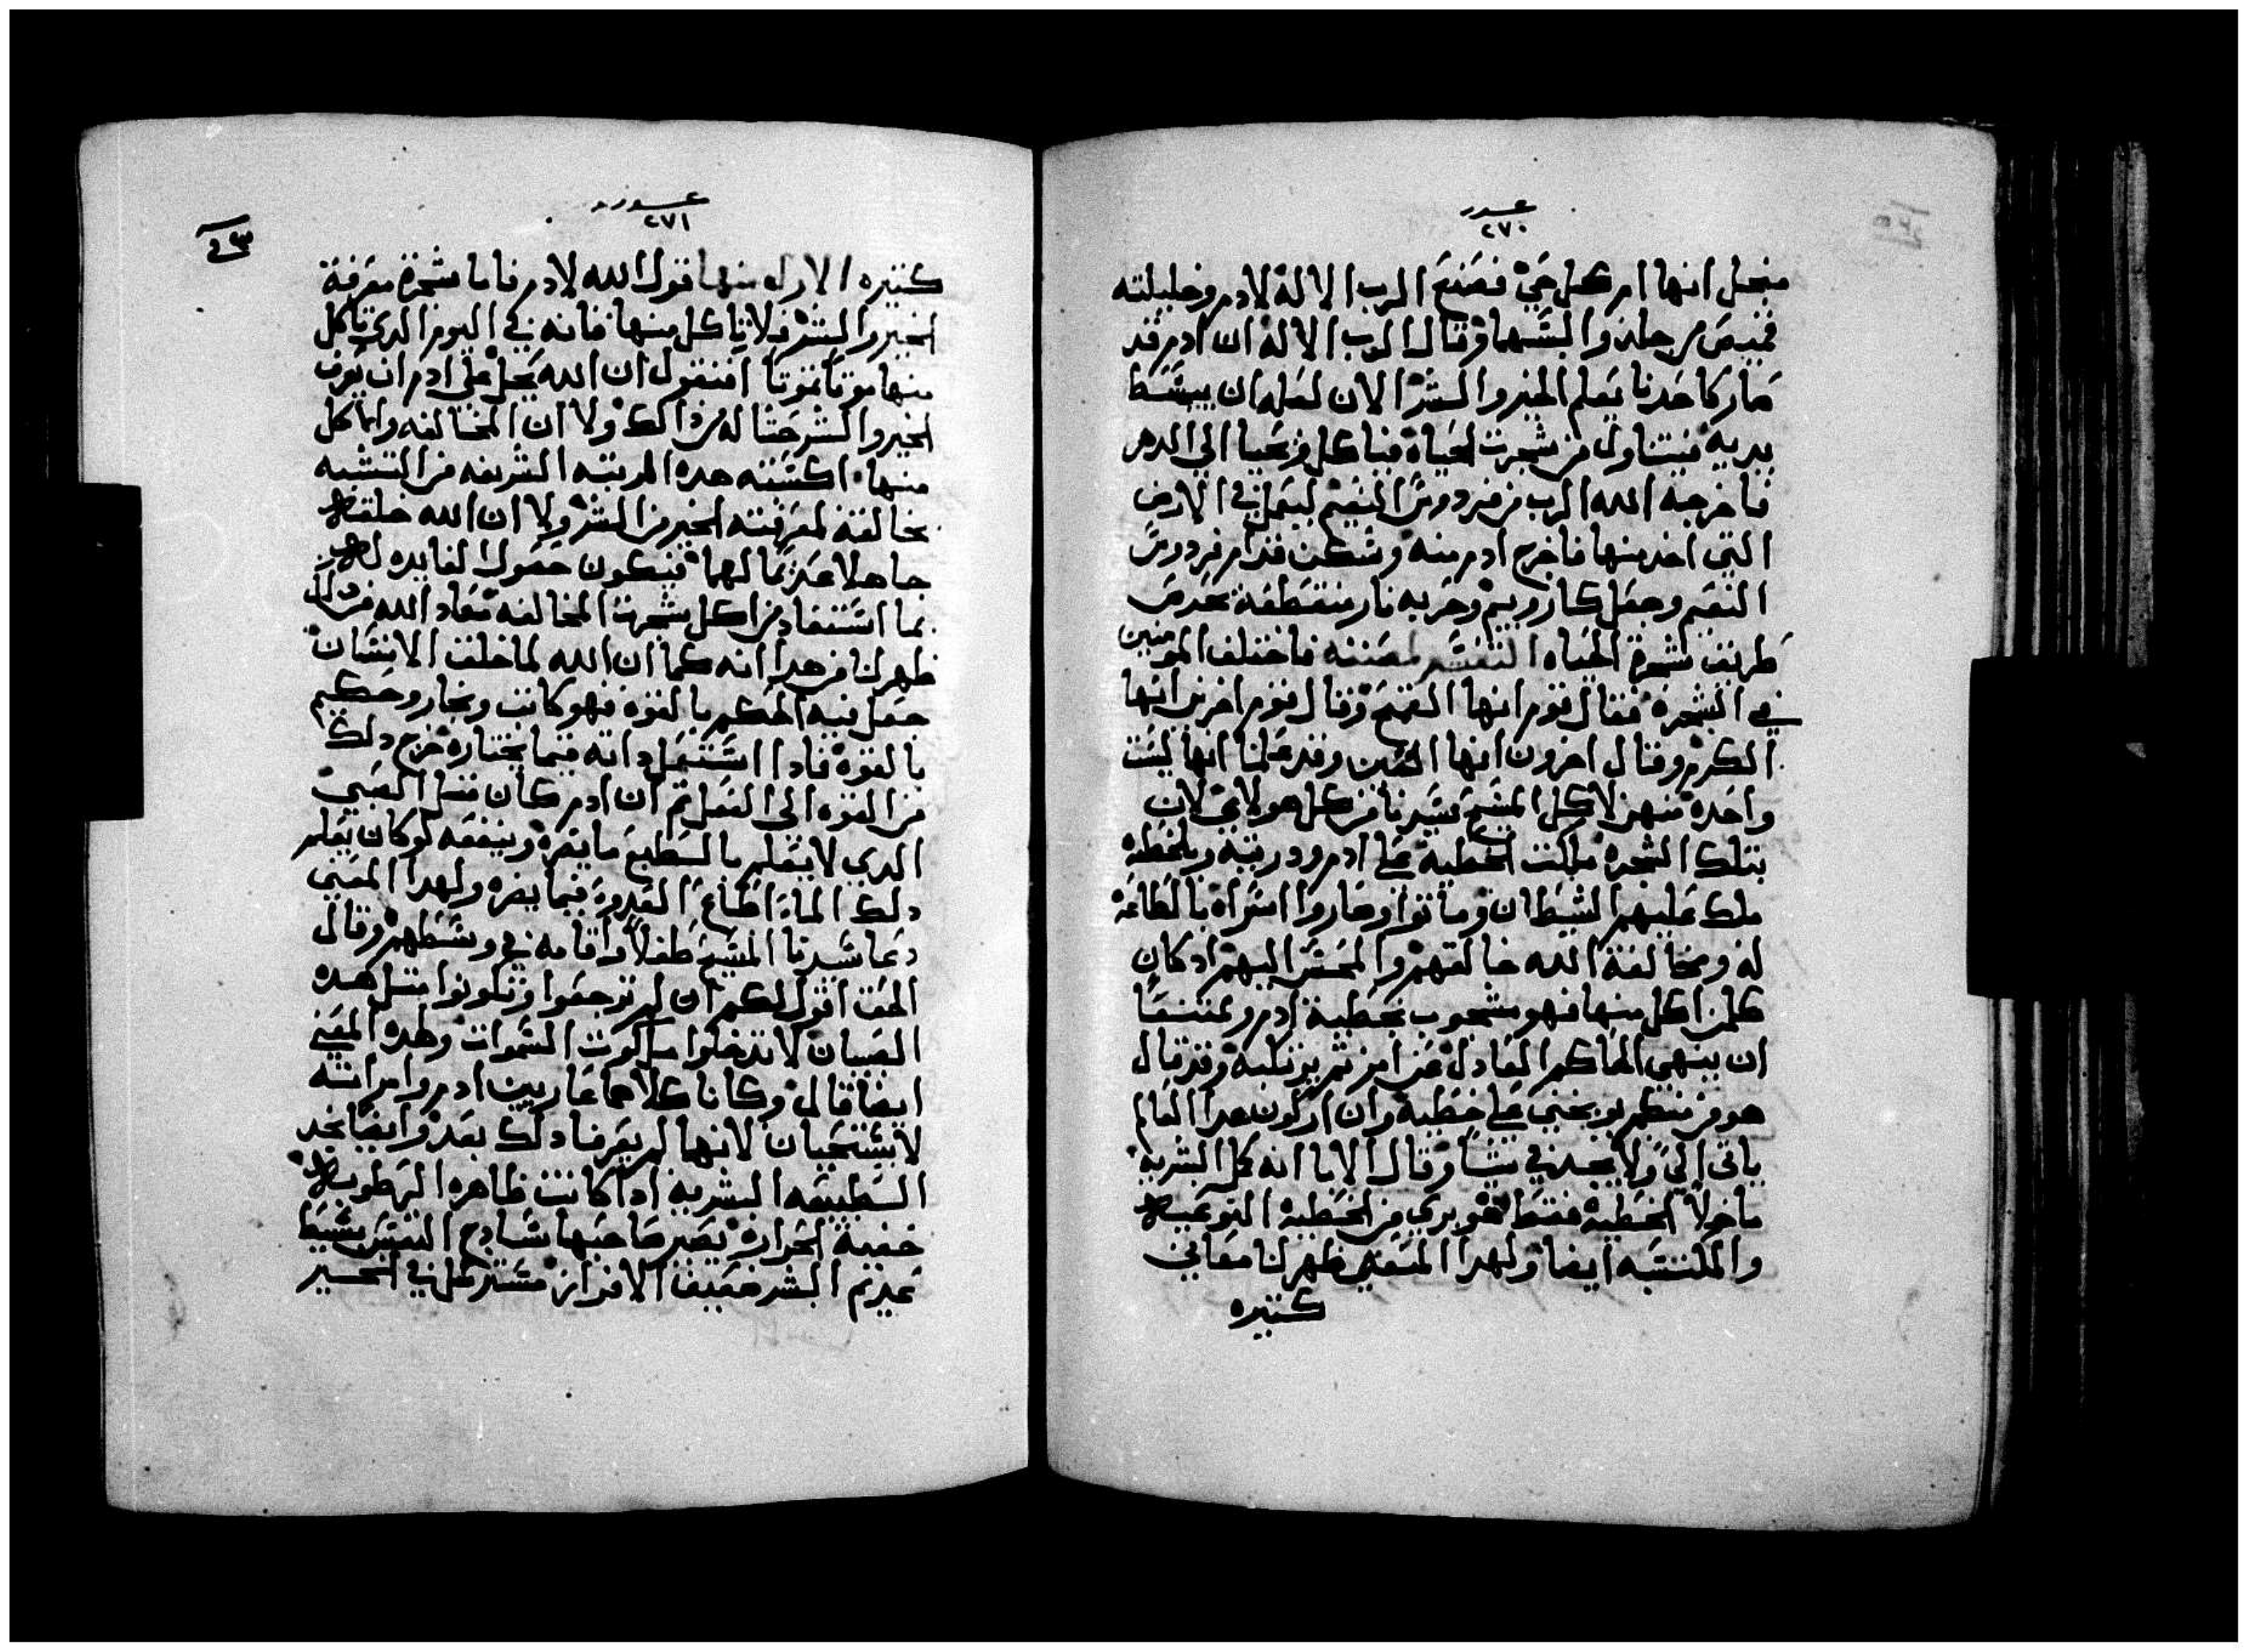 ٢٧٠
منجل انها ام كل حي فصنع الرب الاله لادم وخليلته
قميص من جلد والبسهما وقال الرب الاله ان ادم قد
صار كاحدنا يعلم الخير والشر الان لعله ان يبسط
يديه فيتناول من شجرت الحياه فياكل فيحيا الي الدهر
فاخرجه الله الرب من فردوس النعيم ليعمل في الارض
التي اخد منها فاخرج ادم منه وسكن قدام فردوس
النعيم وجعل كاروبيم وحربه نار منقطفة تحرص
طريق شجرة الحياه التفسير لمصنفه فاختلف المومنين
في الشجره فقال قوم انها القمح وقال قوم اخرين انها
الكرم وقال اخرون انها التين وقد علمنا انها ليست
واحده منهن لاكل المسيح سيدنا من كل هولاي لان
بتلك الشجره ملكت الخطية علي ادم ودريته وبالخطيه
ملك عليهم الشيطان وماتوا وصاروا اسراه بالطاعة
له ومخالفة الله خالقهم والمحسن اليهم اد كان
كلمن اكل منها فهو مسجوب بخطية ادم وممتنعا
ان ينهي الحاكم العادل عن امر ثم يرتكبه وقد قال
هو من منكم يوبخني علي خطيه وان اركون هدا العالم
ياتي الي ولا يجد في شيا وقال الابا انه كل البشريه
ماخلا الخطية فقط هو بري من الخطية النوعية
والمكتسبه ايضا ولهدا المعني ظهر لنا معاني
كتيره
٢٧١
كتيره الاوله منها قول الله لادم فاما شجرة معرفة
الخير والشر فلا تاكل منها فانه في اليوم الدي تاكل
منها موتا تموتا افنقول ان الله بخل علي ادم ان يعرف
الخير والشر حتا له من دالك ولا ان المخالفه والاكل
منها اكسبته هده المرتبه الشريفه من التشبه
بخالقة لمعرفته الخير من الشر ولا ان الله خلقه
جاهلا عديما لهما فيكون حصول الفايده له
بما استفاد من اكل شجرت المخالفه معاد الله من دلك
ظهر لنا من هدا انه كما ان الله لما خلق الانسان
جعل فيه الحكم بالقوه فهو كاتب ونجار وحكيم
بالقوه فادا استعمل داته فيما يختاره خرج دلك
من القوه الي الفعل ثم ان ادم كان مثل الصبي
الدي لا يعلم بالطبع ما يضره وينفعه لو كان يعلم
دلك لما اطاع العدو فيما يضره ولهدا المعني
دعا سيدنا المسيح طفلا واقامه في وسطهم وقال
الحق اقول لكم ان لم ترجعوا وتكونوا متل هده
الصبيان لا تدخلوا ملكوت السموات ولهده المعني
ايضا قال وكانا كلاهما عاريين ادم وامراته
لا يستحيان لانهما لم يعرفا دلك بعد وايضا نجد
الطبيعه البشريه ادا كانت ظاهره الرطوبه
خفية الحراره يصير صاحبها سادج النفس بسيط
عديم الشر خفيف الافراز مسترسل في الخير